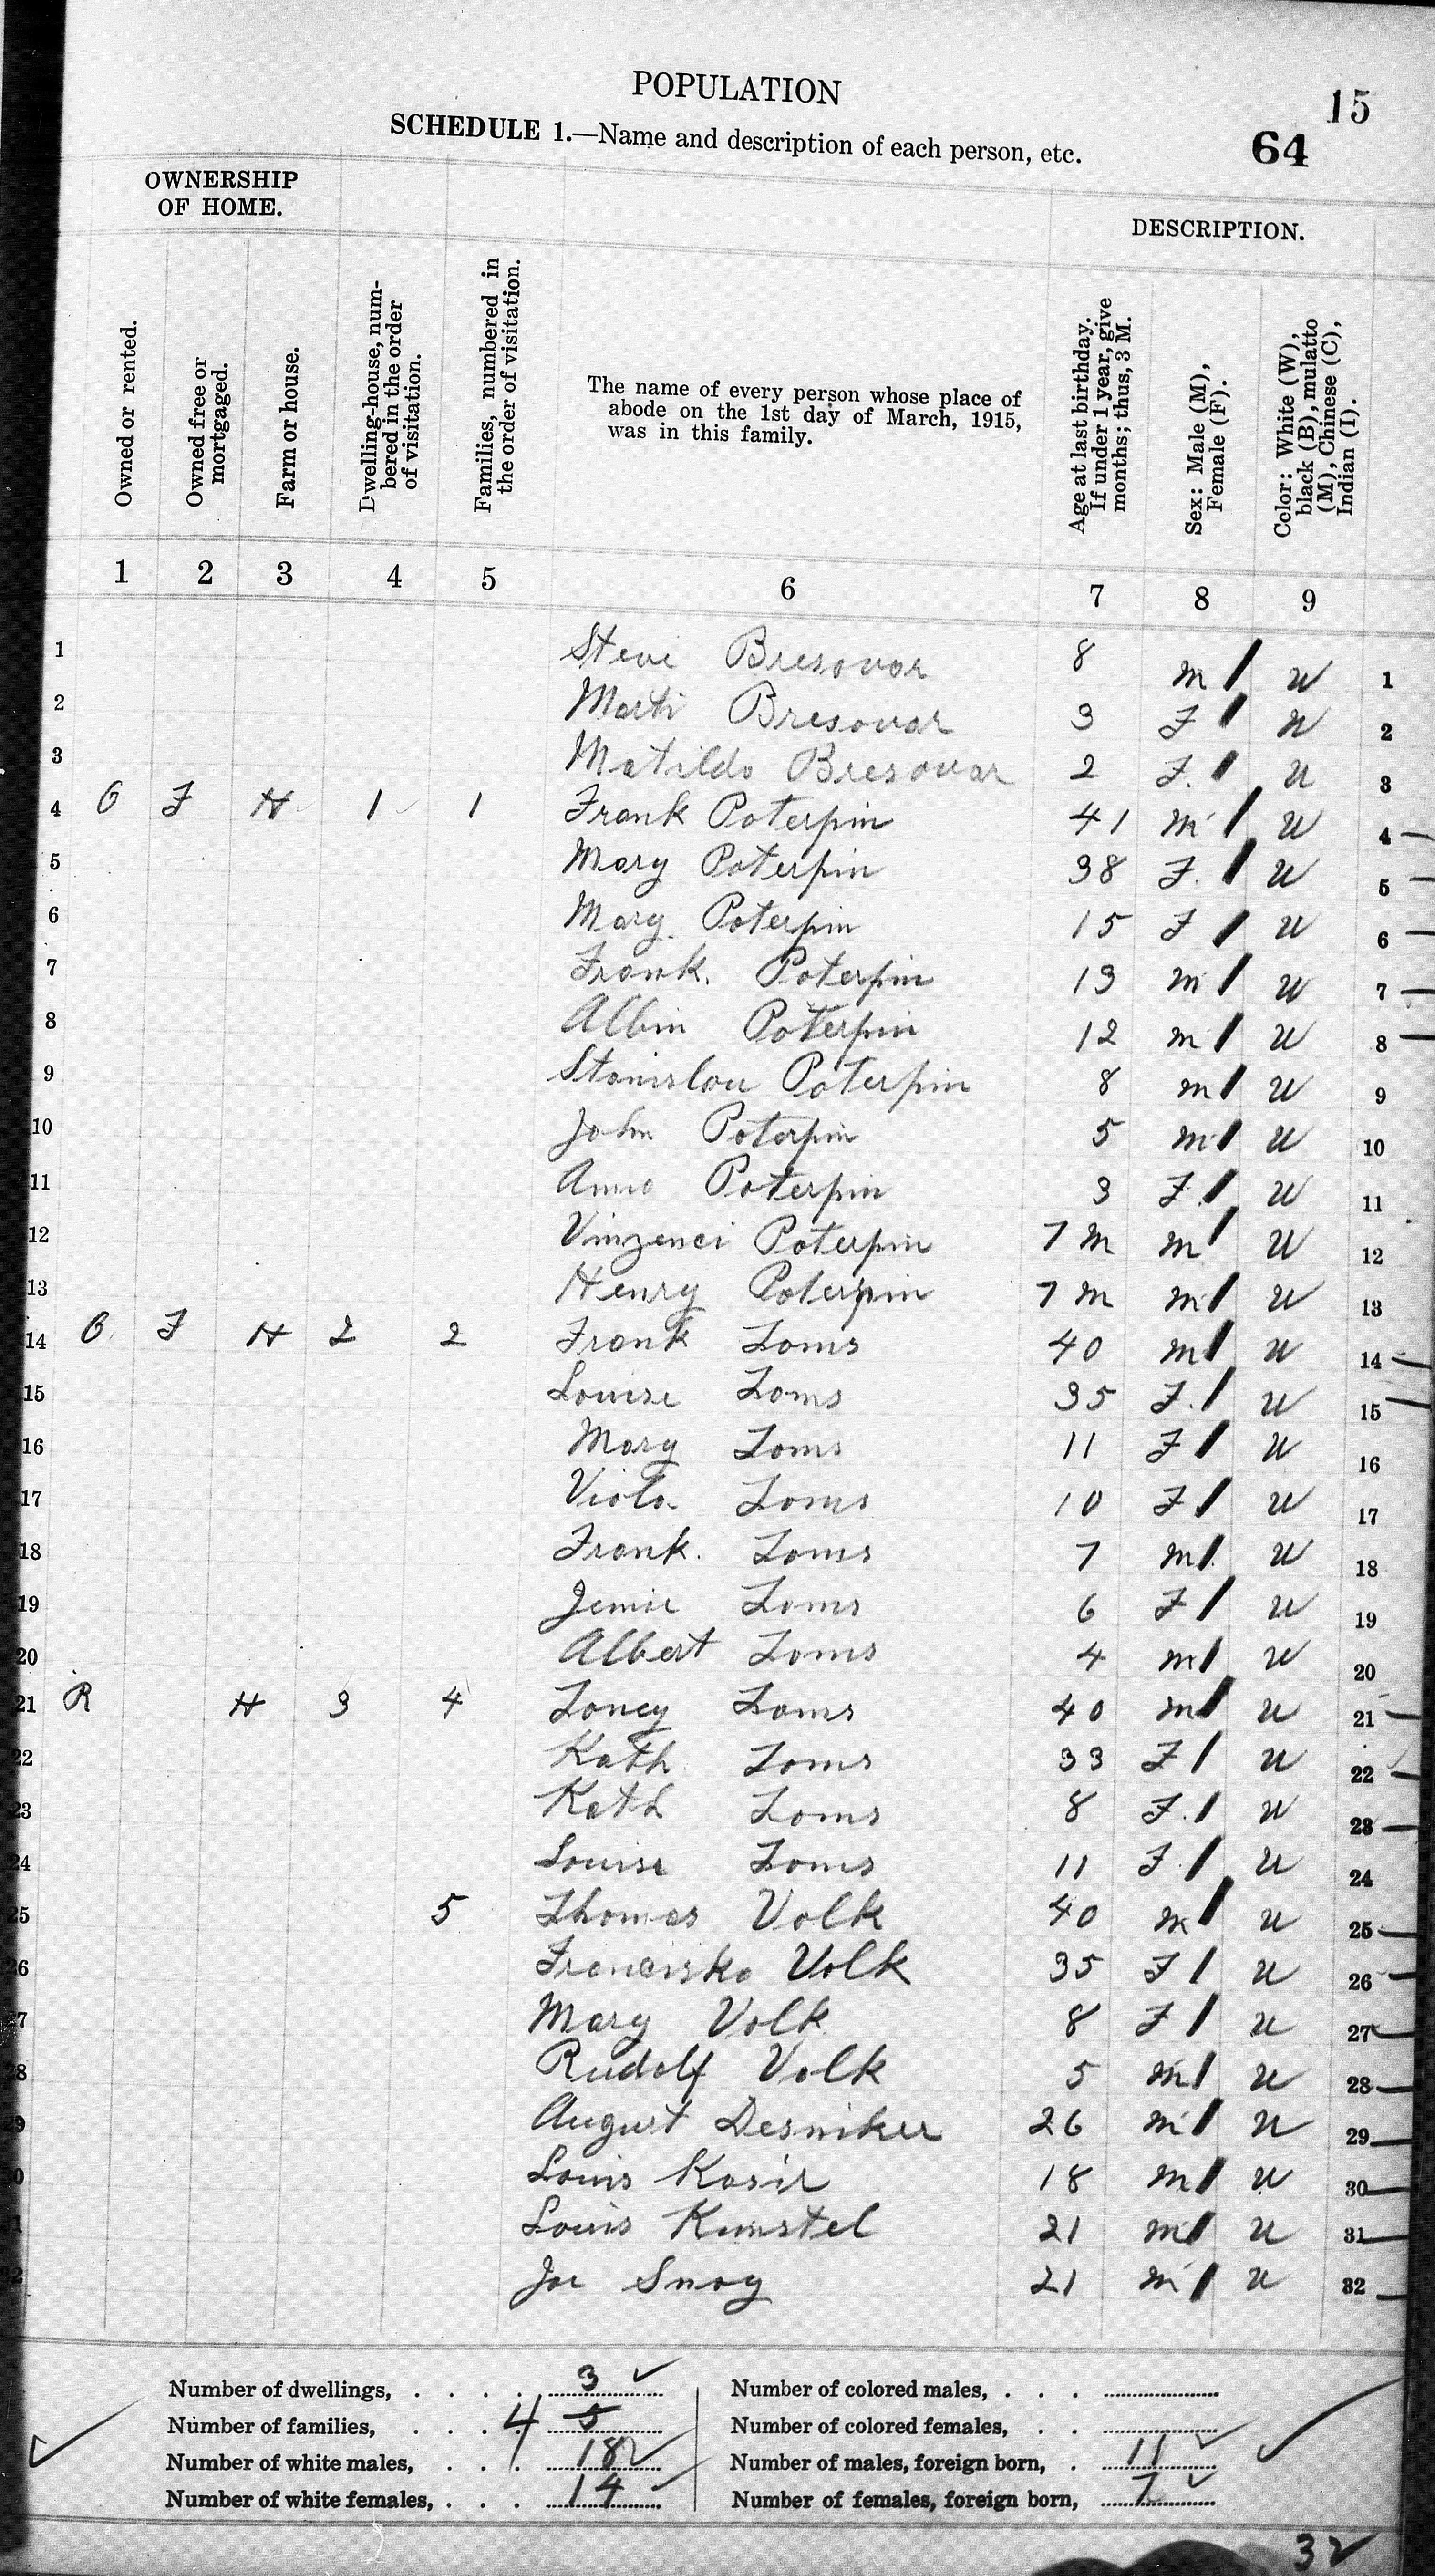 POPULATION
15
SCHEDULE 1.—Name and description of each person, etc.
64
OWNERSHIP OF HOME.
DESCRIPTION.
Owned or rented.
Owned free or mortgaged.
Farm or house.
Dwelling-house, numbered in the order of visitation.
Families, numbered in the order of visitation.
The name of every person whose place of
abode on the 1st day of March, 1915,
was in this family.
Age at last birthday. If under 1 year, give months; thus, 3 M.
Sex: Male (M), Female (F).
Color: White (W), black (B), mulatto (M), Chinese (C), Indian (I).
1 2 3 4 5 6 7 8 9
1 Steve Bresovar 8 M W 1
2 Marti Bresovar 3 F W 2
3 Matilda Bresovar 2 F. W 3
4 O F H 1 1 Frank Poterpin 41 M W 4
5 Mary Poterpin 38 F. W 5
6 Mary Poterpin 15 F W 6
7 Frank. Poterpin 13 M W 7
8 Albin Poterpin 12 M W 8
9 Stanislau Poterpin 8 M W 9
10 John Poterpin 5 M W 10
11 Anna Poterpin 3 F. W 11
12 Vinzenci Poterpin 7 M M W 12
13 Henry Poterpin 7 M M W 13
14 O F H 2 2 Frank Toms 40 M W 14
15 Louise Toms 35 F. W 15
16 Mary Toms 11 F W 16
17 Viola Toms 10 F W 17
18 Frank. Toms 7 M W 18
19 Jennie Toms 6 F W 19
20 Albert Toms 4 M W 20
21 R H 3 4 Toney Toms 40 M W 21
22 Kath Toms 33 F W 22
23 Kath Toms 8 F. W 23
24 Louise Toms 11 F. W 24
25 5 Thomas Volk 40 M W 25
26 Franciska Volk 35 F W 26
27 Mary Volk 8 F W 27
28 Rudolf Volk 5 M W 28
29 August Desniker 26 M W 29
30 Louis Kosir 18 M W 30
31 Louis Kunstel 21 M W 31
32 Joe Snoy 21 M W 32
Number of dwellings, . . . . 3
Number of families, . . . 4 5
Number of white males, . . . 18
Number of white females, . . . 14
Number of colored males, . . .
Number of colored females, . .
Number of males, foreign born, . 11
Number of females, foreign born, 7
32